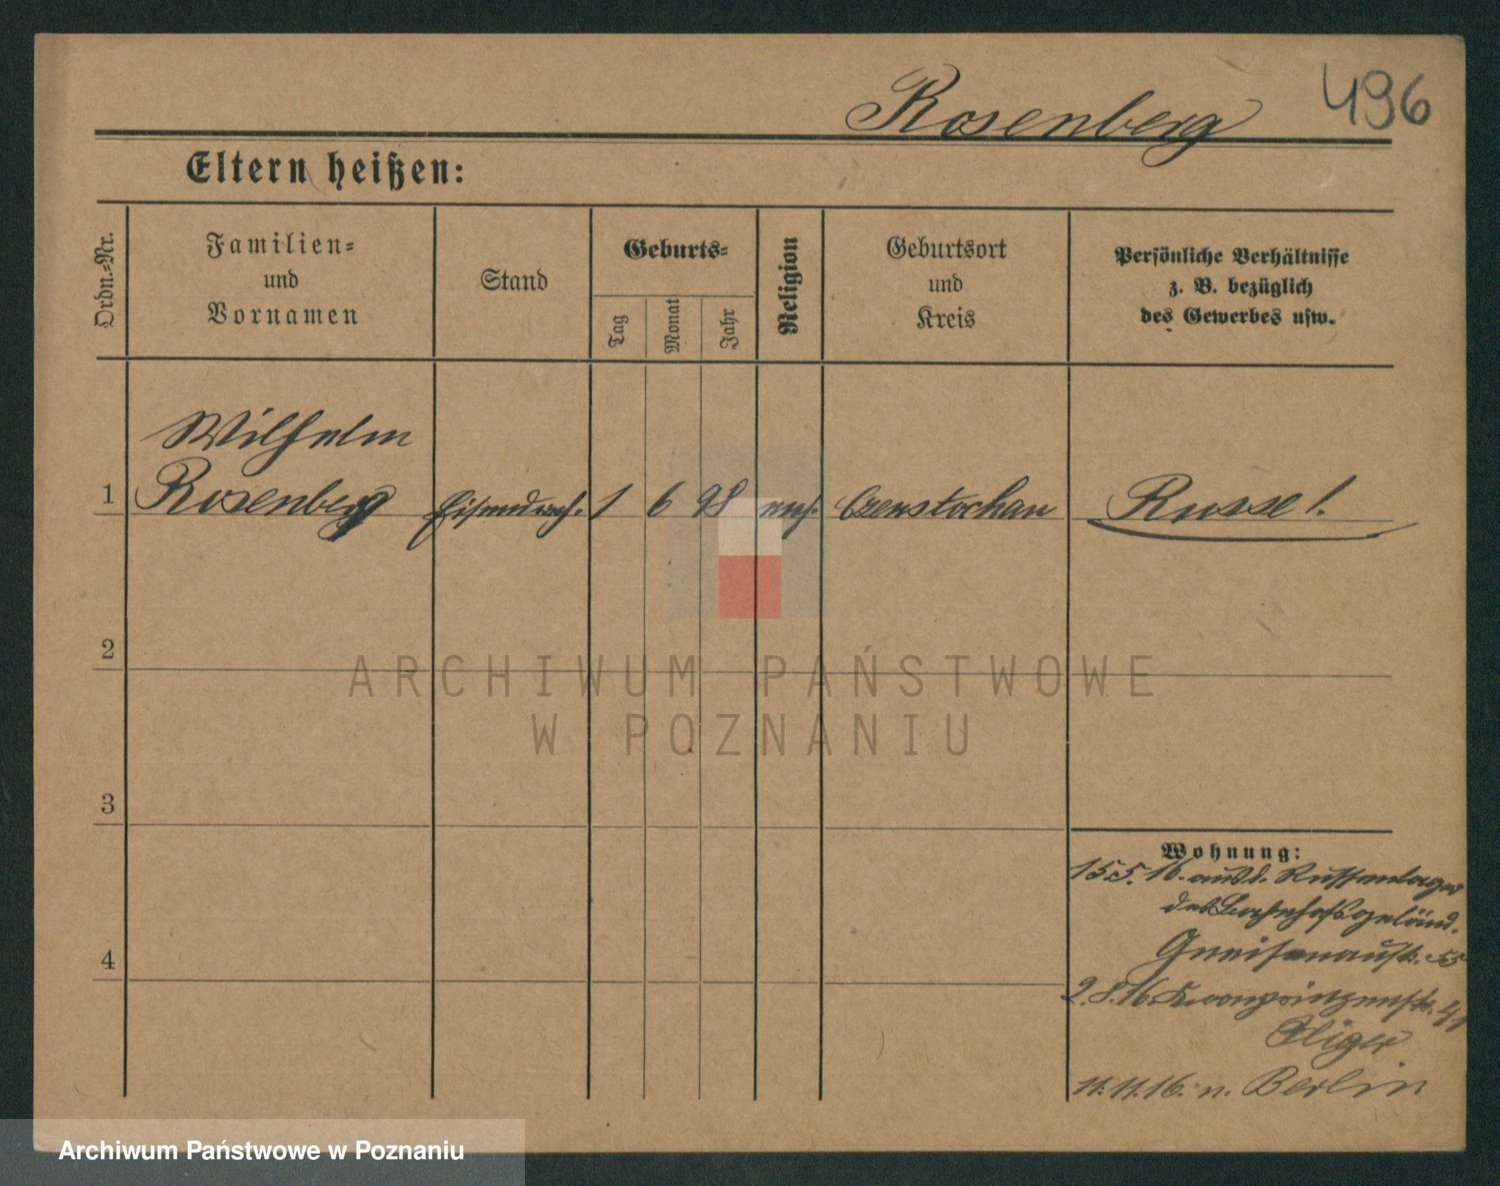 Rosenberg
496
Eltern heißen:
Ordn.-Nr.
Familien-
und
Vornamen
Stand
Geburts-
Tag
Monat
Jahr
Religion
Geburtsort
und
Kreis
Persönliche Verhältnisse
z. B. bezüglich
des Gewerbes usw.
Wilhelm
1 Rosenberg Eisendreh. 1 6 98 Czenstochau Russe!
2
3
4
Wohnung:
15.5.16. aus d. Russenlager
des Bahnhofsgeländ.
Gneisenaustr.
2.8.16. Kronprinzenstr.
11.11.16. n. Berlin
ARCHIWUM PAŃSTWOWE
W POZNANIU
Archiwum Państwowe w Poznaniu